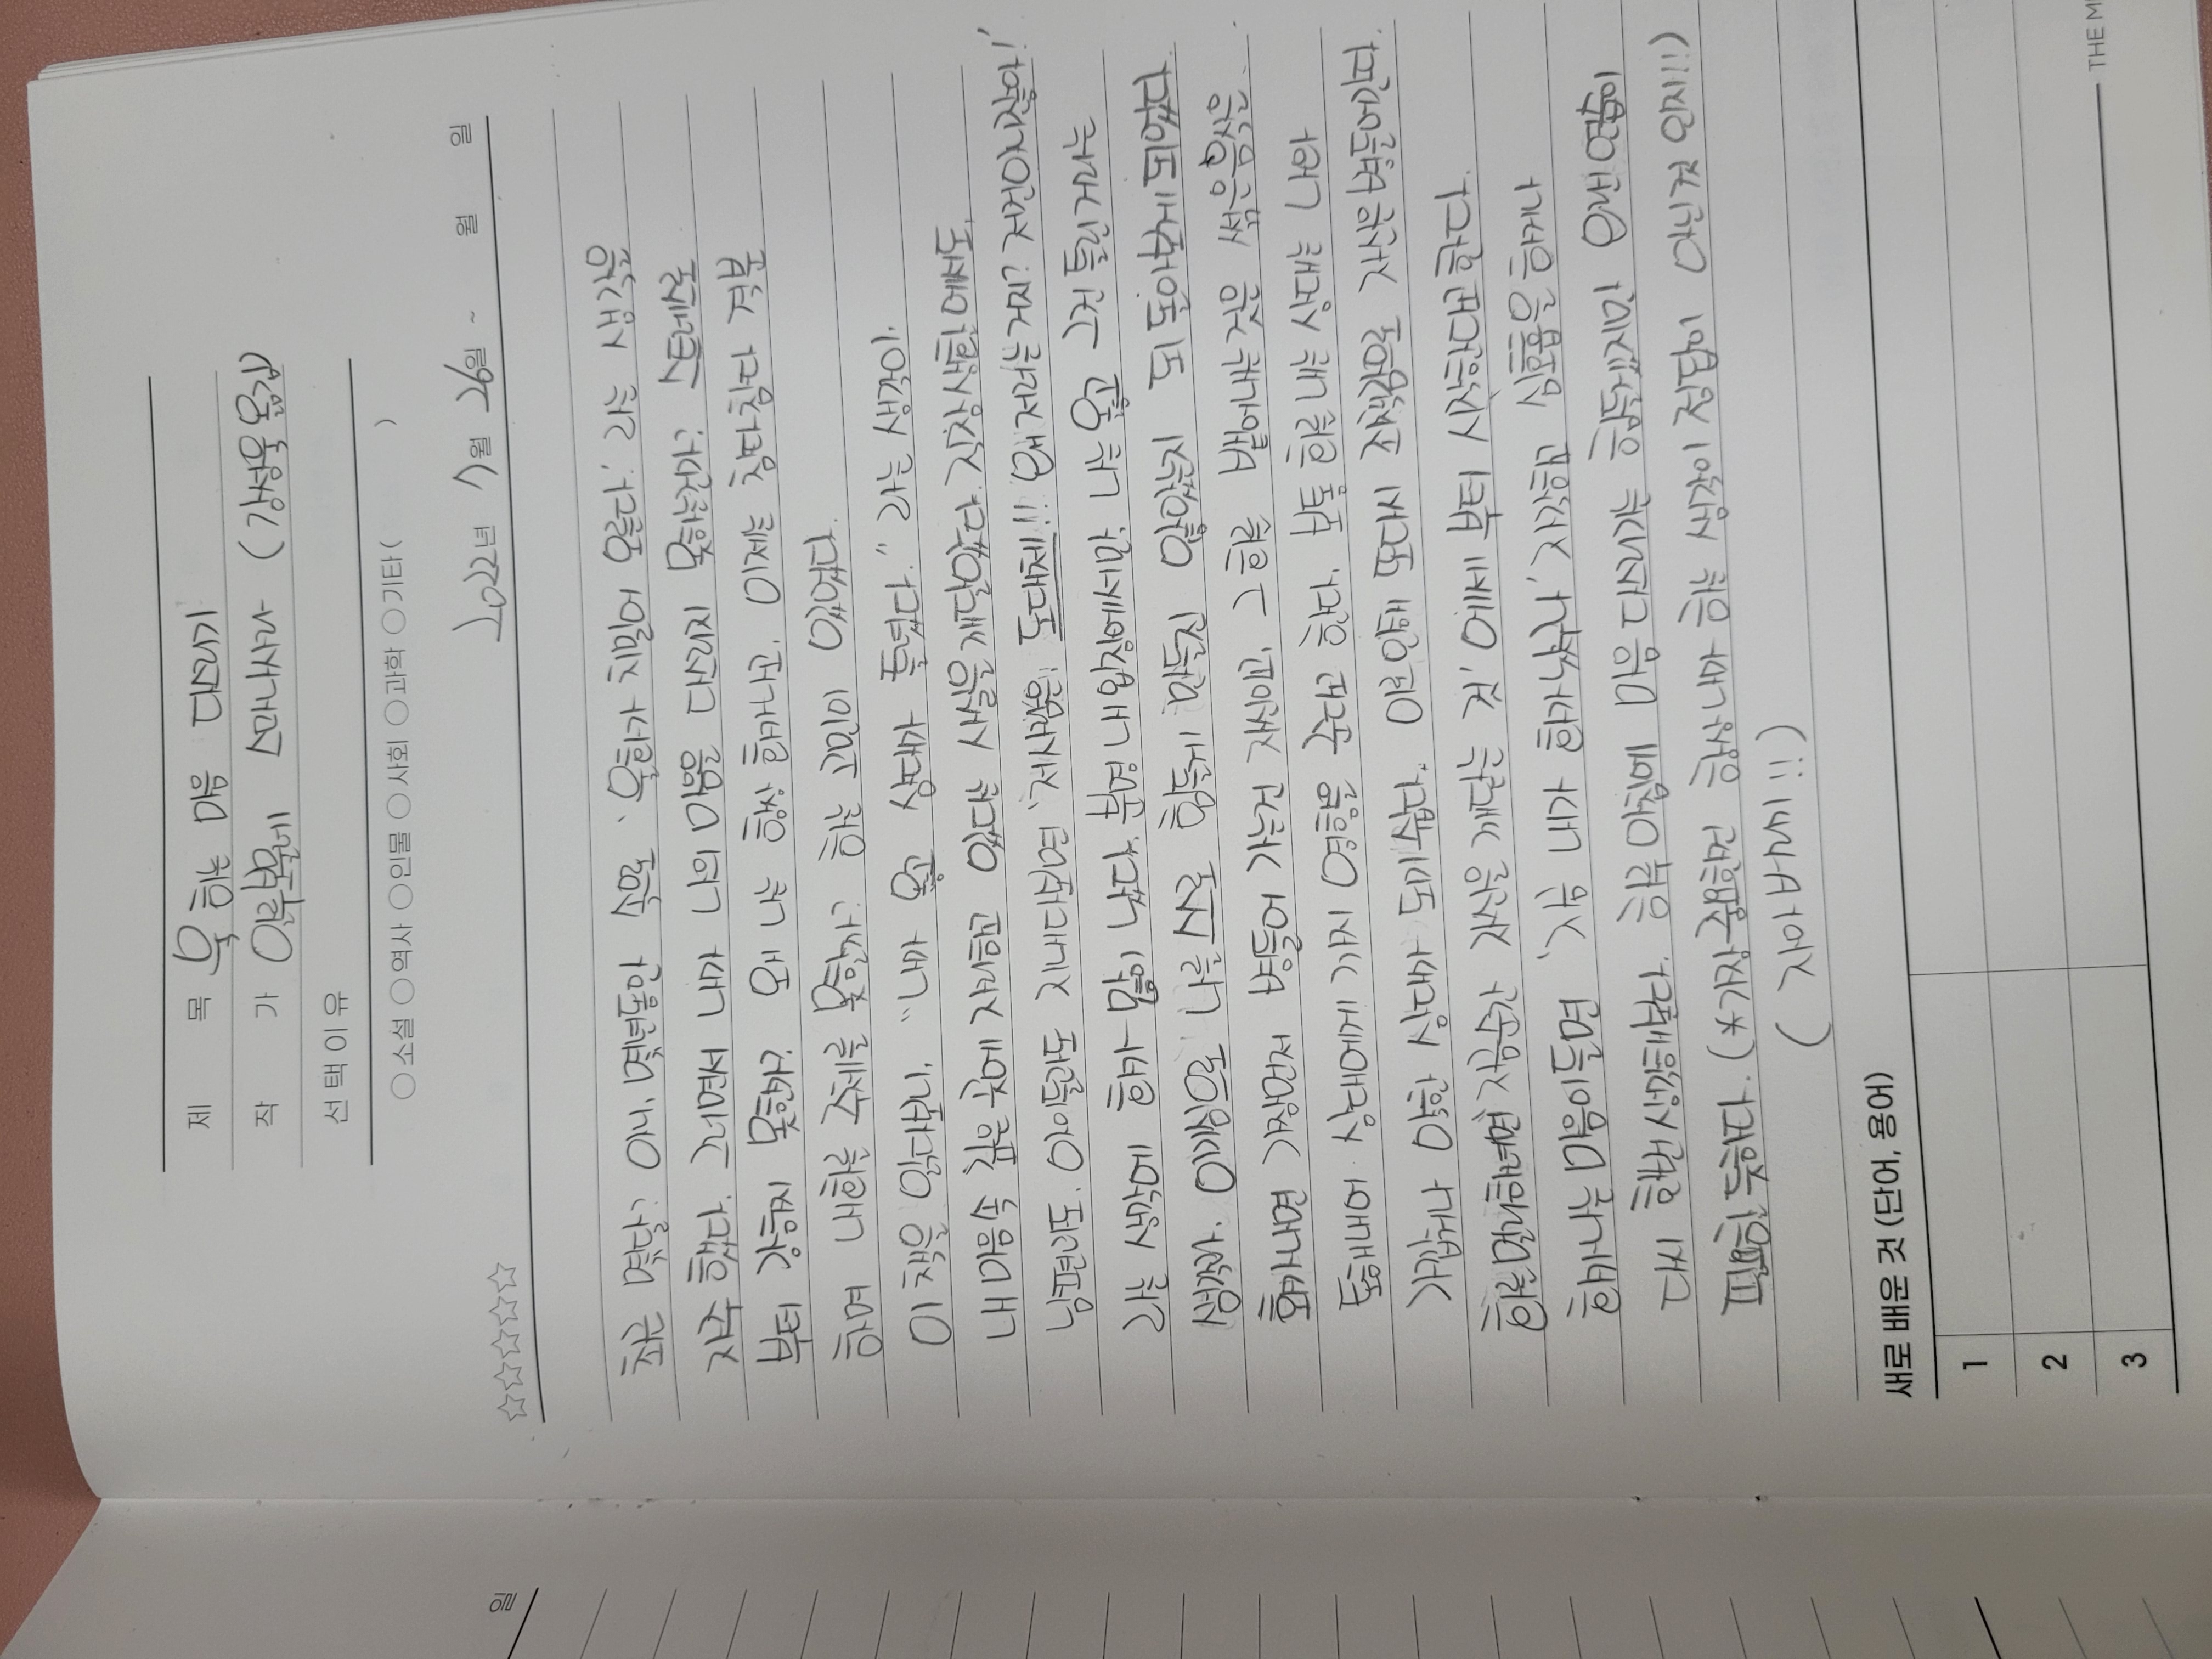 제 목 욱 하는 마음 다스리기
작 가 알루보물레 스마나사라 (강성욱 옮김)
선택이유
○소설 ○역사 ○인물 ○사회 ○과학 ○기타( )
2022년 7월 26일 ~ 월 일
☆☆☆☆☆
일
최근 몇달? 아니, 몇년동안 속으로 '울화가 치밀어 오른다.' 라는 생각을
자주 했다. 그러면서 내가 나의 마음을 다스리지 못하는건가? 스트레스로
부터 강하지 못한가? 왜 나는 항상 화가나고, 이제는 침다침다 격분
하며 내화를 주체를 못할까? 하는 고민이 있었다.
이 책을 읽다보니, "내가 옳고 상대가 틀렸다." 라는 생각이.
내 마음속 깊은 곳에 자리하고 있다는 사실을 깨달았다. 직장생활에서도,
남편과도, 아이들과도 지내다보면 '저사람은, 도대체!! 왜 저러는거지? 저건아니잖아!'
라는 생각에 화가 많이 났다. 분명 내입장에서만, 나는 옳고 그건 틀린거라는
생각과, 이기심으로 나를 스스로 힘들게 만들진 않았는지 되돌아보게 되었다.
화가나면 가장먼저 병들어 가는건 자신이고, 그 화를 뱉어내는 것은 썩은음식을
토해내어 상대에게 까지 영향을 준다고 한다. 보통 화를 내는 상대는 나와
가깝거나 약한 상대가 되기 쉽다. 이로인해 또다시 죄책감으로 자신은병들어간다.
화를 멀리하려면 '지금순간 자신을 깨닫는 것' 에세 부터 시작한다고한다.
화가 나는 마음이들면 '지금 내가 화가났구나' 자각하고 심호흡을 하거나
다시 한번 생각해본다. 하루 아침에 마음 다스리기는 힘들겠지만 오랜 연습이
필요한 듯하다. (*가장중요한건 항상 내가 하는 생각이 정답이 아닌것 인지!!)
( 자아 버리기!! )
새로 배운 것 (단어, 용어)
1
2
3
THE